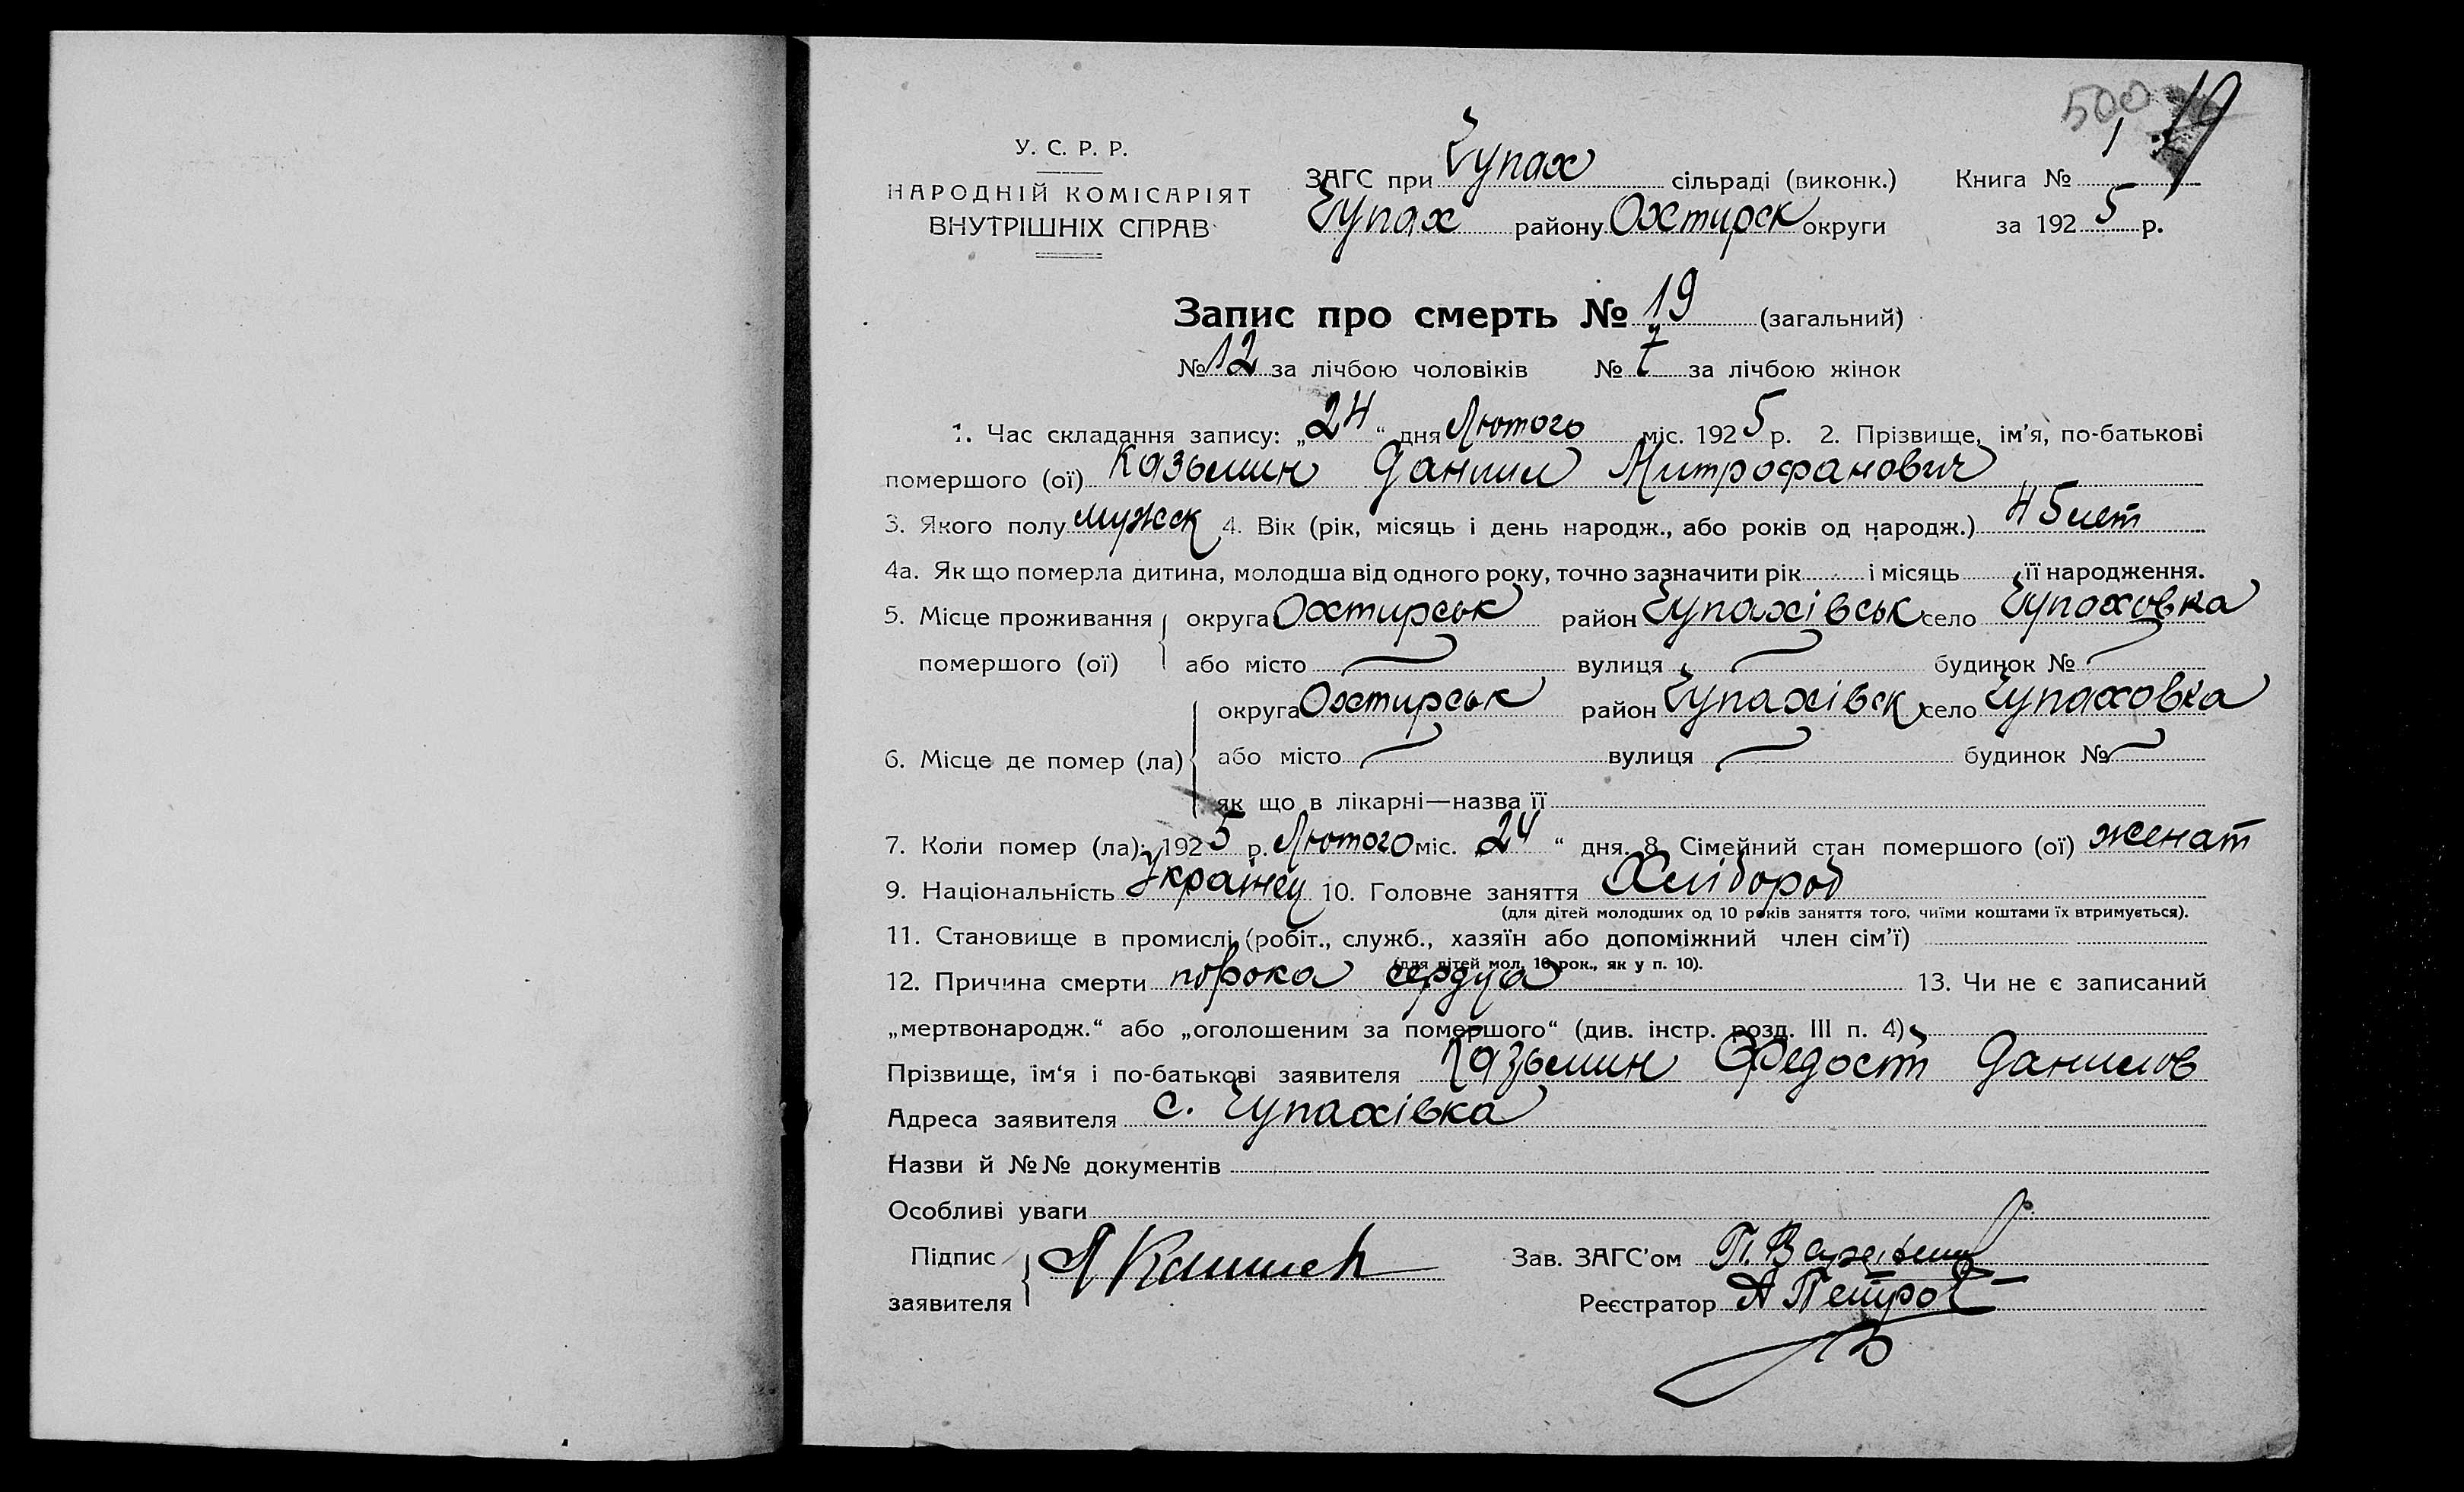 500 19
У. С. Р. Р.
НАРОДНІЙ КОМІСАРІЯТ
ВНУТРІШНІХ СПРАВ
ЗАГС при Чупах сільраді (виконк.) Книга № 1
Чупах району Охтирск округи за 1925 р.
Запис про смерть № 19 (загальний)
№ 12 за лічбою чоловіків № 7 за лічбою жінок
1. Час складання запису: „24“ дня Лютого міс. 1925 р. 2. Прізвище, ім’я, по-батькові
помершого (ої) Казьмин Даниил Митрофанович
3. Якого полу мужск 4. Вік (рік, місяць і день народж., або років од народж.) 45 лет
4а. Як що померла дитина, молодша від одного року, точно зазначити рік і місяць її народження.
5. Місце проживання помершого (ої) округа Охтирськ район Чупахівськ село Чупаховка
або місто вулиця будинок №
6. Місце де помер (ла) округа Охтирськ район Чупахівск село Чупаховка
або місто вулиця будинок №
як що в лікарні—назва її
7. Коли помер (ла): 1925 р. Лютого міс. „24“ дня. 8. Сімейний стан помершого (ої) женат
9. Національність Українец 10. Головне заняття Хлібороб
(для дітей молодших од 10 років заняття того, чиїми коштами їх втримується).
11. Становище в промислі (робіт., служб., хазяїн або допоміжний член сім’ї)
(для дітей мол. 10 рок., як у п. 10).
12. Причина смерти порока сердца 13. Чи не є записаний
„мертвонародж.“ або „оголошеним за помершого“ (див. інстр. розд. III п. 4)
Прізвище, ім‘я і по-батькові заявителя Казьмин Федост Данилов
Адреса заявителя с. Чупахівка
Назви й №№ документів
Особливі уваги
Підпис заявителя
Зав. ЗАГС’ом П.
Реєстратор А Петров